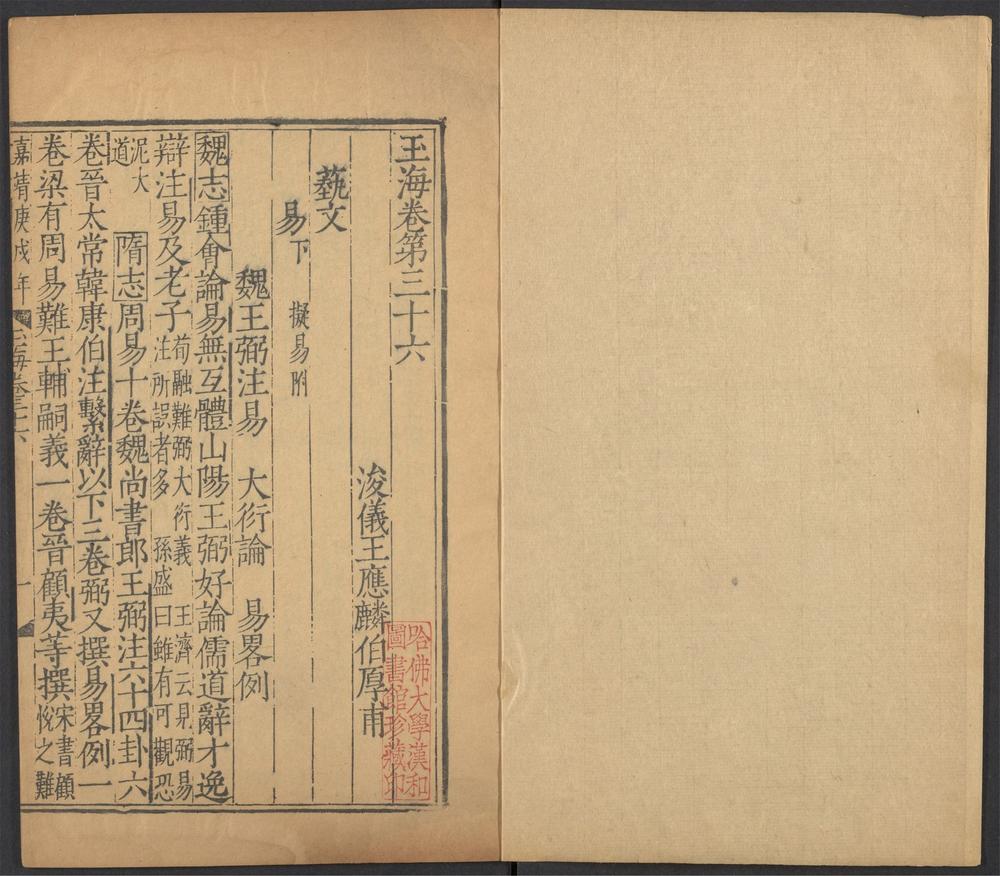 玉海卷第三十六
浚儀王應麟伯厚甫
藝文
易下 擬易附
魏王弼注易 大衍論 易畧例
魏志鍾會論易無互體山陽王弼好論儒道辭才逸
辯注易及老子荀融難弼大衍義 王濟云見弼易
注所誤者多 孫盛曰雖有可觀恐
泥大
道 隋志周易十卷魏尚書郎王弼注六十四卦六
卷晉太常韓康伯注繫辭以下三卷弼又撰易畧例一
卷梁有周易難王輔嗣義一卷晉顧夷等撰宋書顧
悅之難
嘉靖庚戌年 玉海卷三十六 一
哈佛大學漢和
圖書館珍藏印